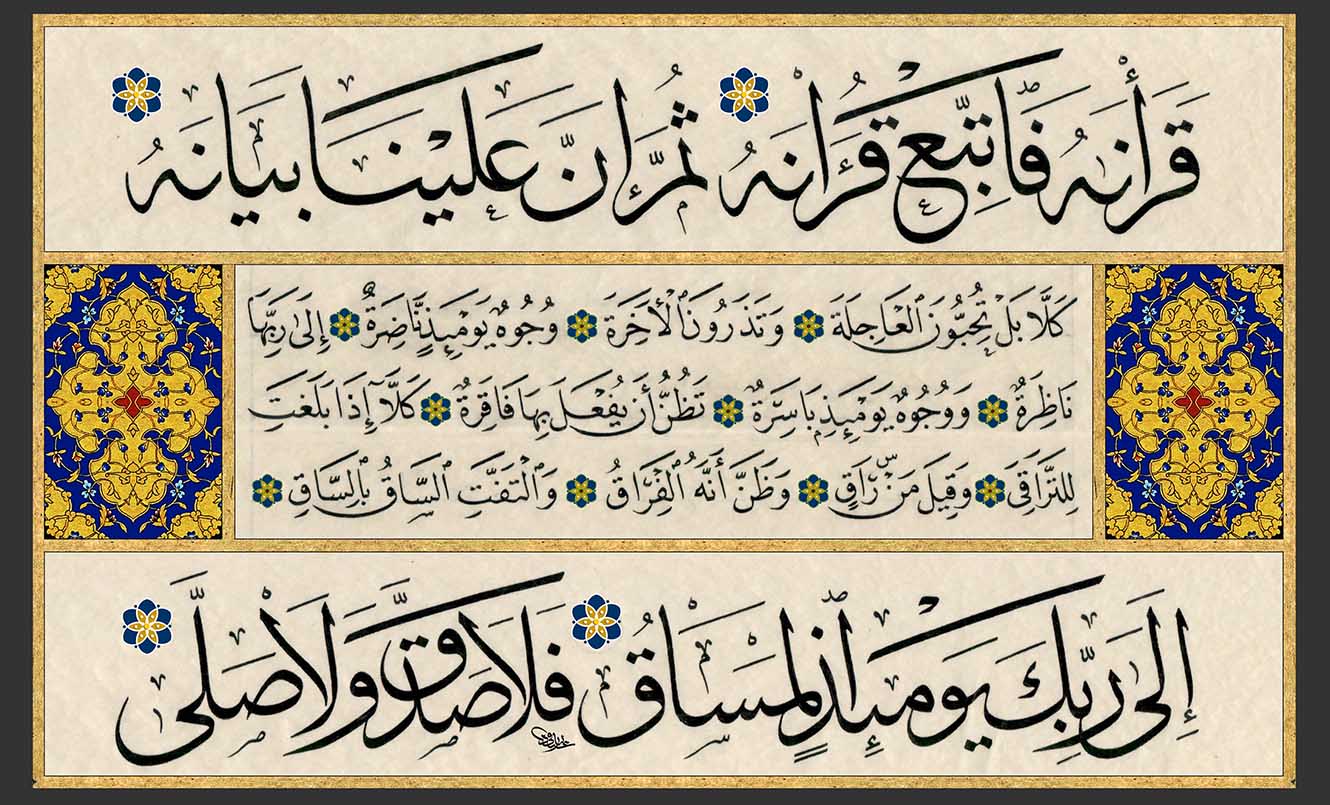 قَرَأْنٰهُ فَاتَّبِعْ قُرْاٰنَهُ ثُمَّ اِنَّ عَلَيْنَا بَيَانَهُ
كَلَّا بَلْ تُحِبُّونَ ٱلْعَاجِلَةَ وَتَذَرُونَ ٱلْأٓخِرَةَ وُجُوهٌ يَوْمَئِذٍ نَّاضِرَةٌ إِلَىٰ رَبِّهَا
نَاظِرَةٌ وَوُجُوهٌ يَوْمَئِذٍ بَاسِرَةٌ تَظُنُّ أَن يُفْعَلَ بِهَا فَاقِرَةٌ كَلَّآ إِذَا بَلَغَتِ
ٱلتَّرَاقِيَ وَقِيلَ مَنْ رَاقٍ وَظَنَّ أَنَّهُ ٱلْفِرَاقُ وَٱلْتَفَّتِ ٱلسَّاقُ بِٱلسَّاقِ
اِلَىٰ رَبِّكَ يَوْمَئِذٍ الْمَسَاقُ فَلَا صَدَّقَ وَلَا صَلَّى